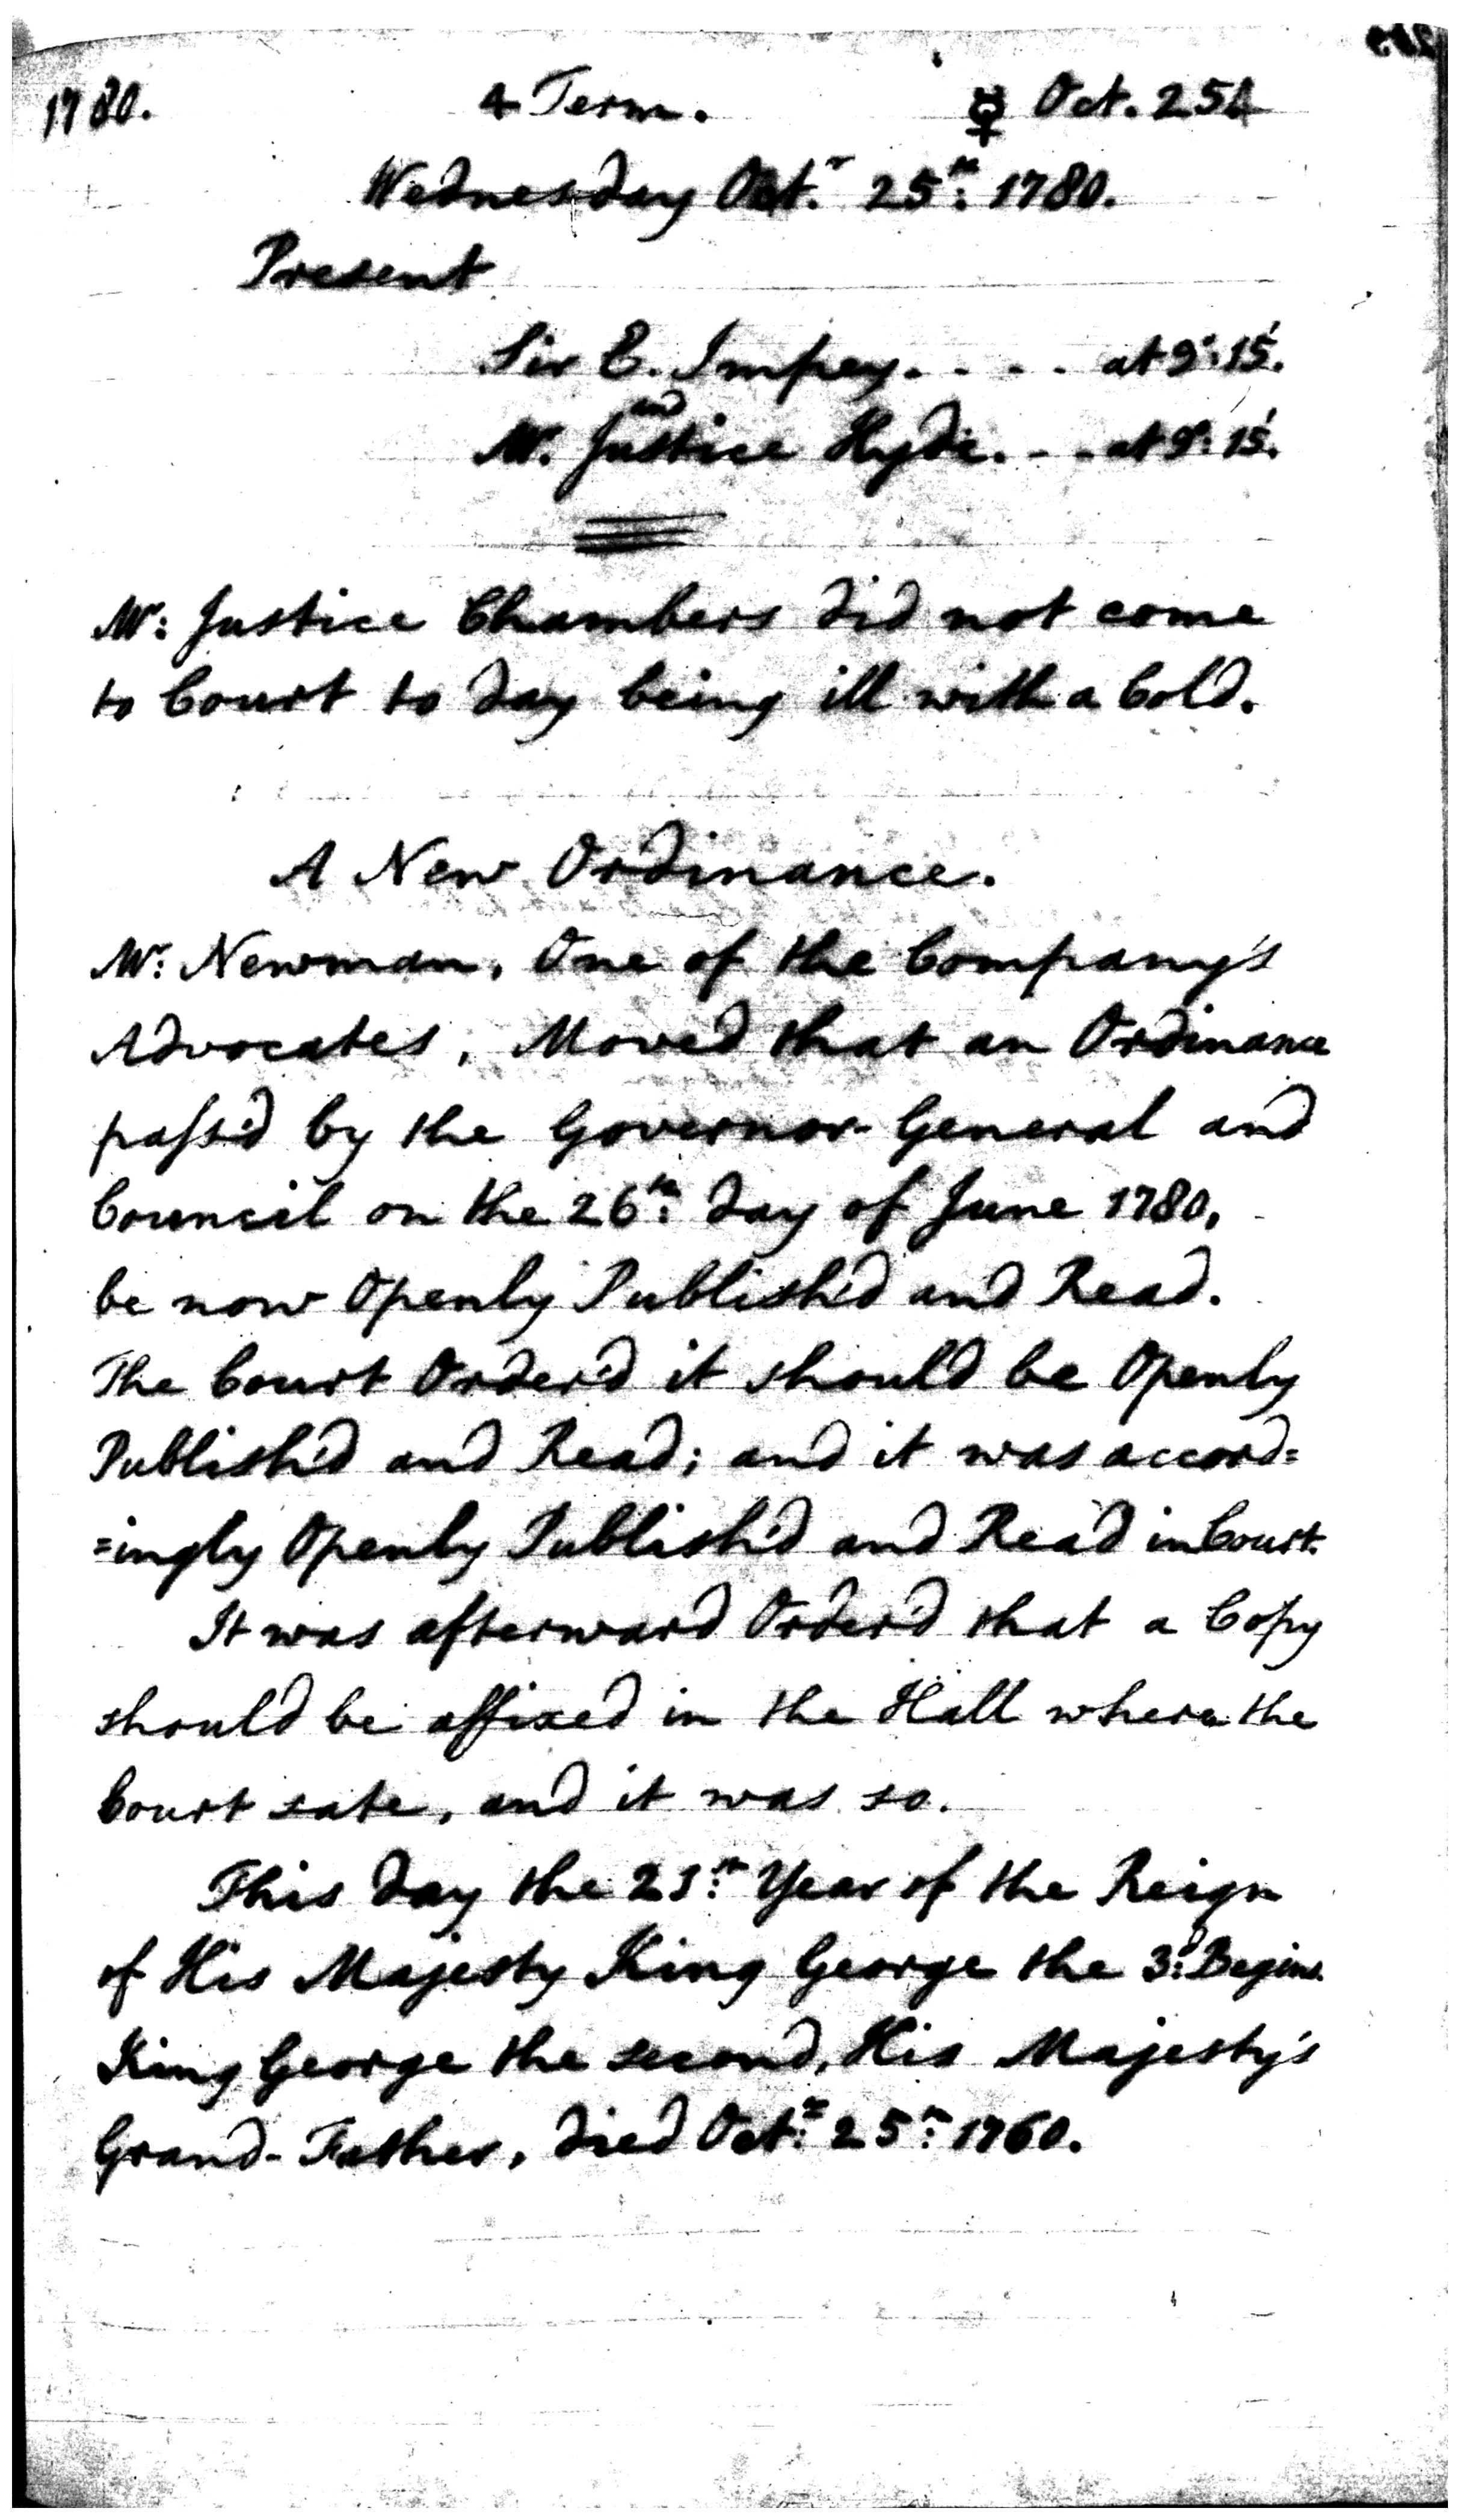 1780. 4 Term. ☿ Oct. 25th
Wednesday Octr. 25th: 1780.
Present
Sir E. Impey. . . . at 9h: 15'.
and
Mr. Justice Hyde. . . at 9h: 15'.
Mr: Justice Chambers did not come
to Court to day being ill with a Cold.
A New Ordinance.
Mr: Newman, One of the Company's
Advocates, Moved that an Ordinance
passed by the Governor-General and
Council on the 26th: day of June 1780,
be now Openly Publish'd and Read.
The Court Order'd it should be Openly
Publish'd and Read; and it was accord=
=ingly Openly Publish'd and Read in Court.
It was afterward Order'd that a Copy
should be affixed in the Hall where the
Court sate, and it was so.
This day the 21st: Year of the Reign
of His Majesty King George the 3d: Begins.
King George the second, His Majesty's
Grand-Father, died Octr: 25th: 1760.